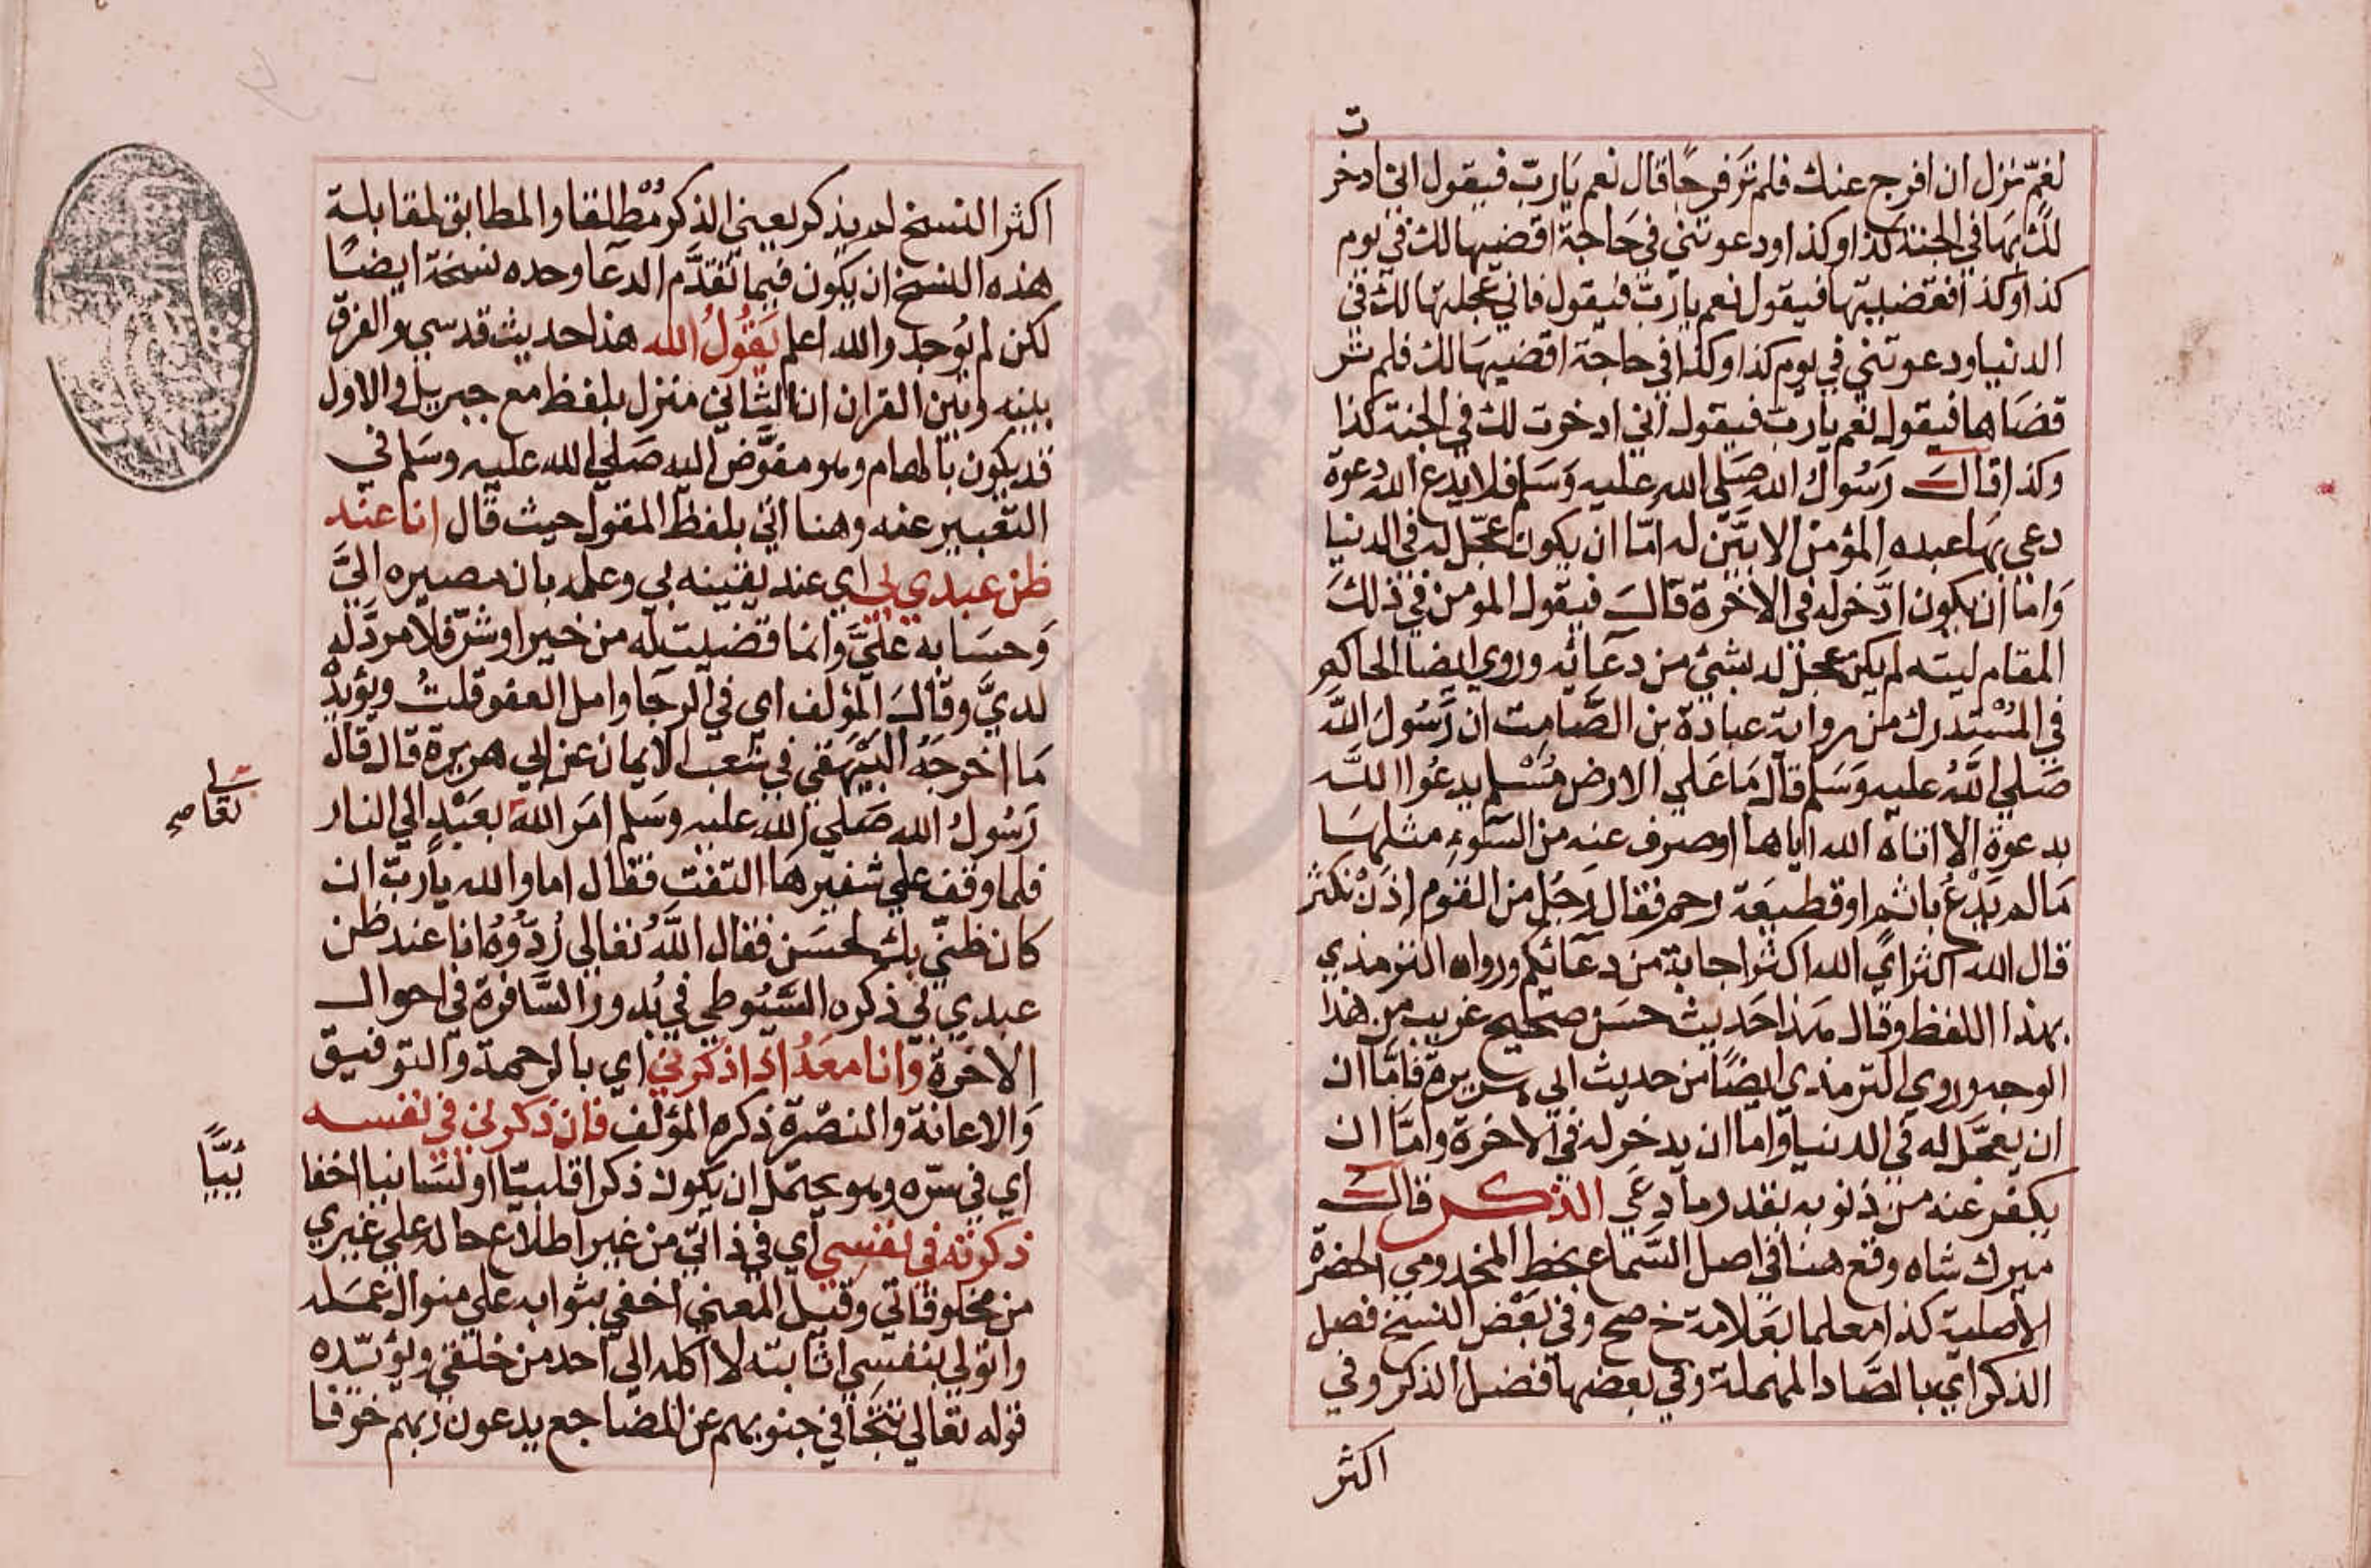 ت
لغم نزل ان افرج عنك فلم تر فرجًا قال نعم يارب فيقول اني ادخر
لك بها في الجنة كذا وكذا ودعوتني في حاجة اقضيها لك في يوم
كذا وكذا فقضيتها فيقول نعم يارب فيقول فاني عجلتها لك في
الدنيا ودعوتني في يوم كذا وكذا في حاجة اقضيها لك فلم تر
قضاها فيقول نعم يارب فيقول اني ادخرت لك في الجنة كذا
وكذا قال رسول الله صلي الله عليه وسلم فلا يدع الله دعوة
دعي بها عبده المؤمن الا بيّن له امّا ان يكون عجّل له في الدنيا
واما ان يكون ادّخر له في الاخرة قال فيقول المومن في ذلك
المقام ليته لم يكن عجّل له بشئ من دعآئه وروي ايضا الحاكم
في المستدرك من رواية عبادة بن الصّامت ان رسول الله
صلي الله عليه وسلم قال ما علي الارض مسلم يدعوا الله
بدعوة الا اتاه الله اياها او صرف عنه من السّوء مثلها
ما لم يدع باثم او قطيعة رحم فقال رجل من القوم اذن نكثر
قال الله اكثر اي الله اكثر اجابة من دعآئكم ورواه الترمذي
بهذا اللفظ وقال هذا حديث حسن صحيح غريب من هذا
الوجه وروي الترمذي ايضًا من حديث ابي هريرة فامّا ان
ان يعجّل له في الدنيا واما ان يدخر له في الاخرة وامّا ان
يكفر عنه من ذنوبه بقدر ما دعي الذكر قال
ميرك شاه وقع هنا في اصل السّماع بخط المخدومي الحضرة
الاصلية كذا معلما بعلامة خ صح وفي بعض النسخ فصل
الذكر اي بالصّاد المهملة وفي بعضها فضل الذكر وفي
اكثر
اكثر النسخ لم يذكر يعني الذكر مُطلقا والمطابق لمقابلة
هذه النسخ ان يكون فيما تقدّم الدعآ وحده نسخة ايضًا
لكن لم يوجد والله اعلم يَقُولُ الله هذا حديث قدسي والفرق
بينه وبين القران ان الثاني منزل بلفظ مع جبريل والاول
قد يكون بالهام وهو مفوّض اليه صلي الله عليه وسلم في
التعبير عنه وهنا اتي بلفظ المقول حيث قال انا عند
ظن عبدي بي اي عند يقينه بي وعلمه بان مصيره اليّ
وحسابه عليّ وانما قضيت له من خير او شرّ فلا مردّ له
لديّ وقال المؤلف اي في الرجآ وامل العفو قلتُ ويؤيدُ
ما اخرجه البيهقي في شعب الايمان عن ابي هريرة قال قال
رسول الله صلي الله عليه وسلم امر الله بعبد الي النار
فلما وقف علي شفيرها التفت فقال اما والله يارب ان
كان ظنّي بك لحسن فقال الله تعالي رُدّوُه انا عند ظن
عبدي بي ذكره السّيوطي في بُدور السّافرة في احوال
الاخرة وانا معهُ اذا ذكرني اي بالرحمة والتوفيق
والاعانة والنصرة ذكره المؤلف فان ذكرني في نفسه
اي في سرّه وهو يحتمل ان يكون ذكرا قلبيّا او لسانيا اخفا
ذكرته في نفسي اي في ذاتي من غير اطلاع حاله علي غيري
من مخلوقاتي وقيل المعني اخفي بثوابه علي منوال عمله
واتولي بنفسي اثابته لا اكله الي احد من خلقي ويؤيّده
قوله تعالي تتجافي جنوبهم عن المضاجع يدعون ربهم خوفا
تعا صح
بيًّا